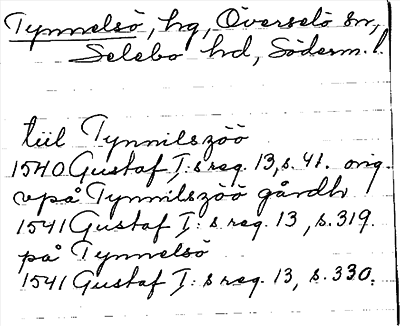 Tynnelsö, hg, Överselö sn,
Selebo hd, Söderm. l.
tiil Tynnilszöö
1540 Gustaf I:s reg. 13, s. 41. orig.
vpå Tynnilszöö gårdh
1541 Gustaf I:s reg. 13, s. 319.
på Tynnelsö
1541 Gustaf I:s reg. 13, s. 330.